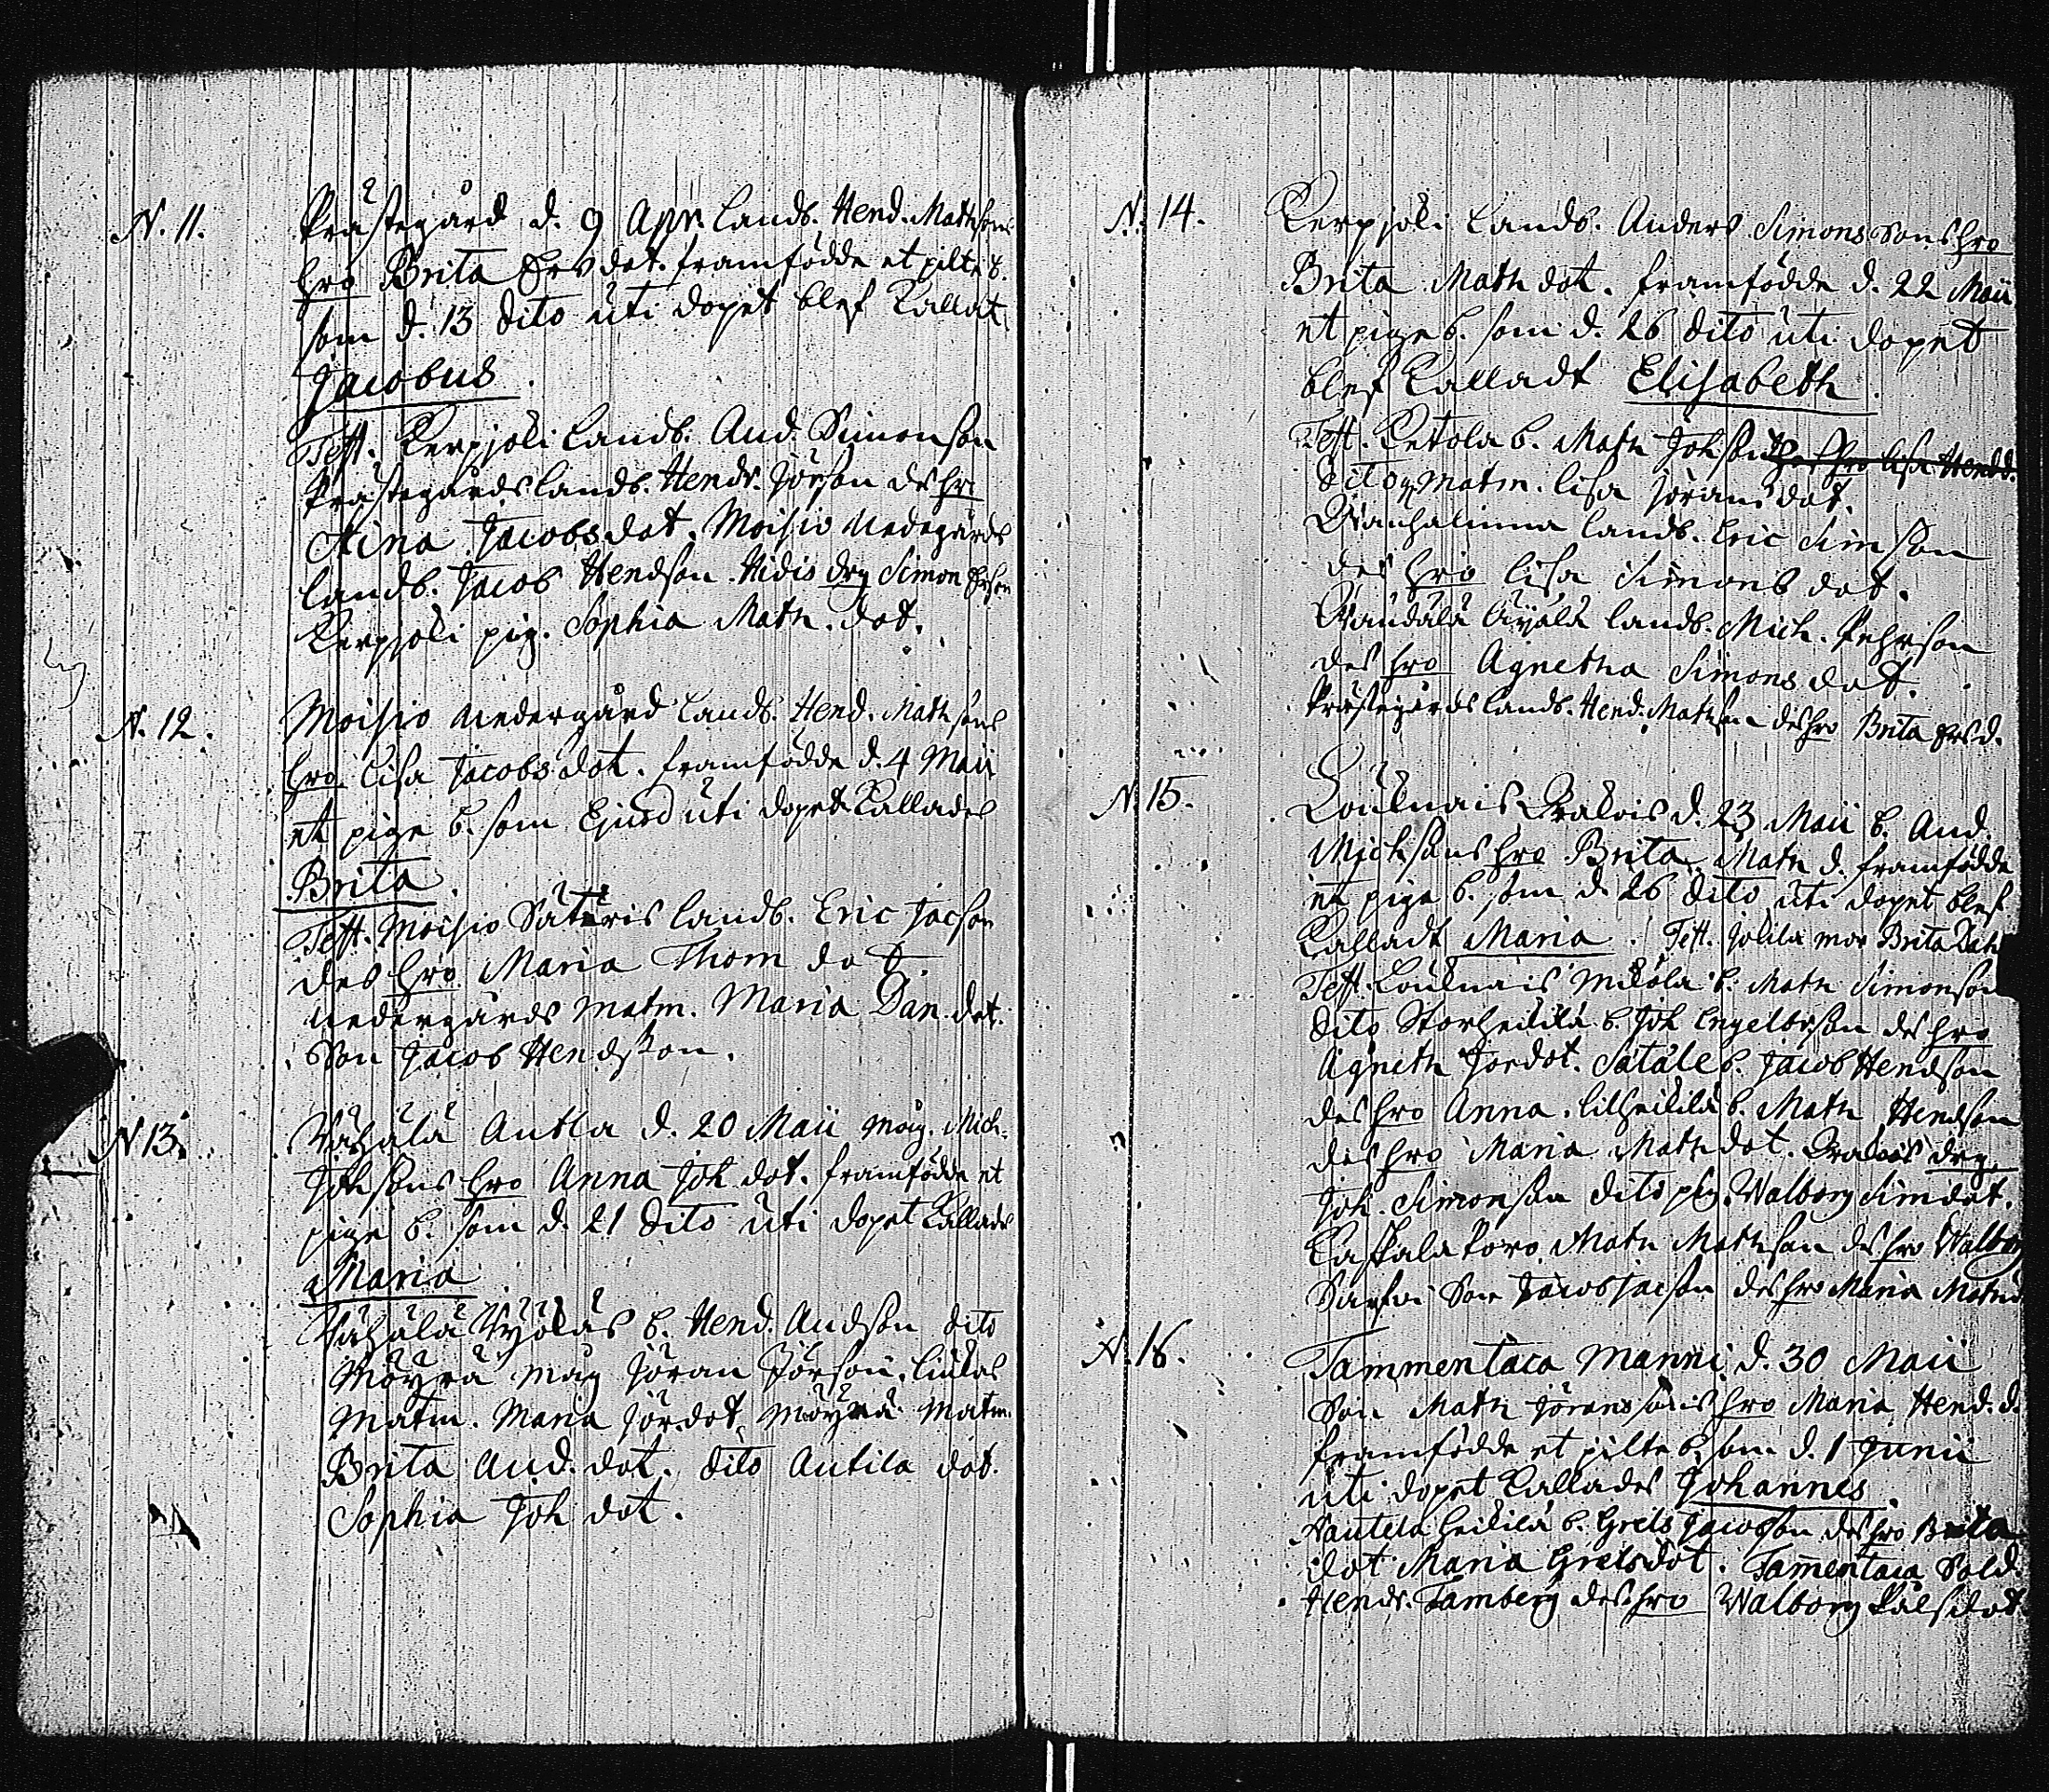 N. 11.
Prästegård d. 9 Apr. Landb. Hend. Mathsons
hro Brita Ersdot. framfödde et pilte b.
som d. 13 dito uti dopet blef Kallat
Jacobus.
Test. Kerpjoki Landb. And. Simonson
Prästegårdslandb. Hendr. Jörson des hro
Stina Jacobsdot. Moisio Nedergårds
landb. Jacob Hendson. Hidis drg Simon Erson
Kerpjoki pig. Sophia Math. dot.
N. 12.
Moisio Nedergård Landb. Hend. Mathsons
hro Lisa Jacobsdot. framfödde d. 4 Maii
et pige b. som Ejusd uti dopet Kallades
Brita.
Test. Moisio Säteris landb. Eric Jacson
des hro Maria Thom dot.
Nedergårds matm. Maria Dan. dot.
Son Jacob Hendson.
N 13.
Vähälä Antla d. 20 Maii måg. Mich.
Johsons hro Anna Joh dot. framfödde et
pige b. som d. 21 dito uti dopet Kallades
Maria
Vähälä b. Hend. Andson dito
Möyrä måg Jöran Jörson.
Matm. Maria Jördot. Möyrä Matm.
Brita And. dot. dito Antila dot.
Sophia Joh dot.
N. 14.
Kerpjoki Landb. Anders Simonssons hro
Brita Math dot. framfödde d. 22 Maii
et pige b. som d. 26 dito uti dopet
blef Kalladt Elisabeth.
Test. Ketola b. Math Johson des hro Lisa Hendd.
Dito Matm. Lisa Jöransdot.
landb. Eric Simson
des hro Lisa Simons dot.
landb. Mich. Pehrson
des hro Agnetha Simons dot.
Prästegårdslandb. Hend. Mathson des hro Brita Ersd.
N. 15.
Loukinais d. 23 Maii b. And.
Michsons hro Brita Math d. framfödde
et pige b. som d. 26 dito uti dopet blef
Kalladt Maria. Test. Jokila mor Brita
Test. Loukinais Mikola b. Math Simonson
dito Storheikilä b. Joh Engelbrson des hro
Agneth Jordot. b. Jacob Hendson
des hro Anna. Lilheikilä b. Math Hendson
des hro Maria Mathdot. drg.
Joh. Simonson dito pig. Walborg Simdot.
Math Mathson des hro Walborg
Son Jacob Jacson des hro Maria Mathd
N. 16.
Tammentaca Manni d. 30 Maii
Son Math Jöranssons hro Maria Hend. d.
framfödde et pilte b. som d. 1 Junii
uti dopet Kallades Johannes.
Nautela heikilä b. Grels Jacobson des hro Brita
dot Maria Grelsdot. Tamentaca Sold.
Hendr. Tamberg des hro Walborg Pålsdot.